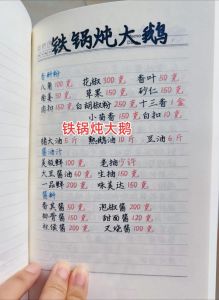 铁锅炖大鹅
香料粉
八角100克 花椒300克 香叶50克
50克 草果150克 砂仁150克
肉扣150克 白胡椒粉250克 十三香1盒
小茴香150克 白扣10克
铁锅炖大鹅
猪大油5斤 熟鹅油10斤 豆油5斤
酱油汁
美极鲜100克 老抽少许
大豆酱油50克 生抽150克
一品鲜200克 味美达150克
酱料
香其酱50克 泡椒酱200克
排骨酱150克 甜面酱120克
柱侯酱200克 叉烧酱100克